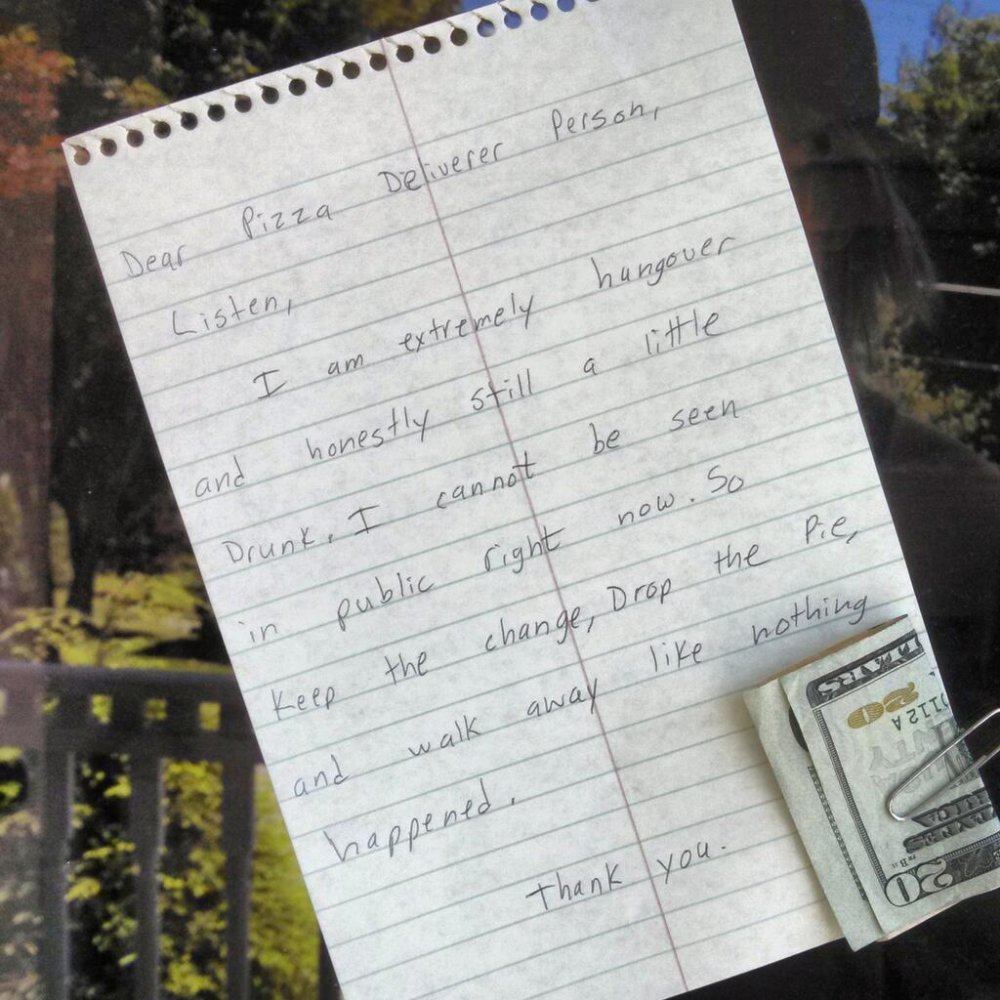 Dear Pizza Deliverer Person,
Listen,
I am extremely hungover
and honestly still a little
Drunk. I cannot be seen
in public right now. So
Keep the change, Drop the Pie,
and walk away like nothing
happened.
Thank you.
20
20